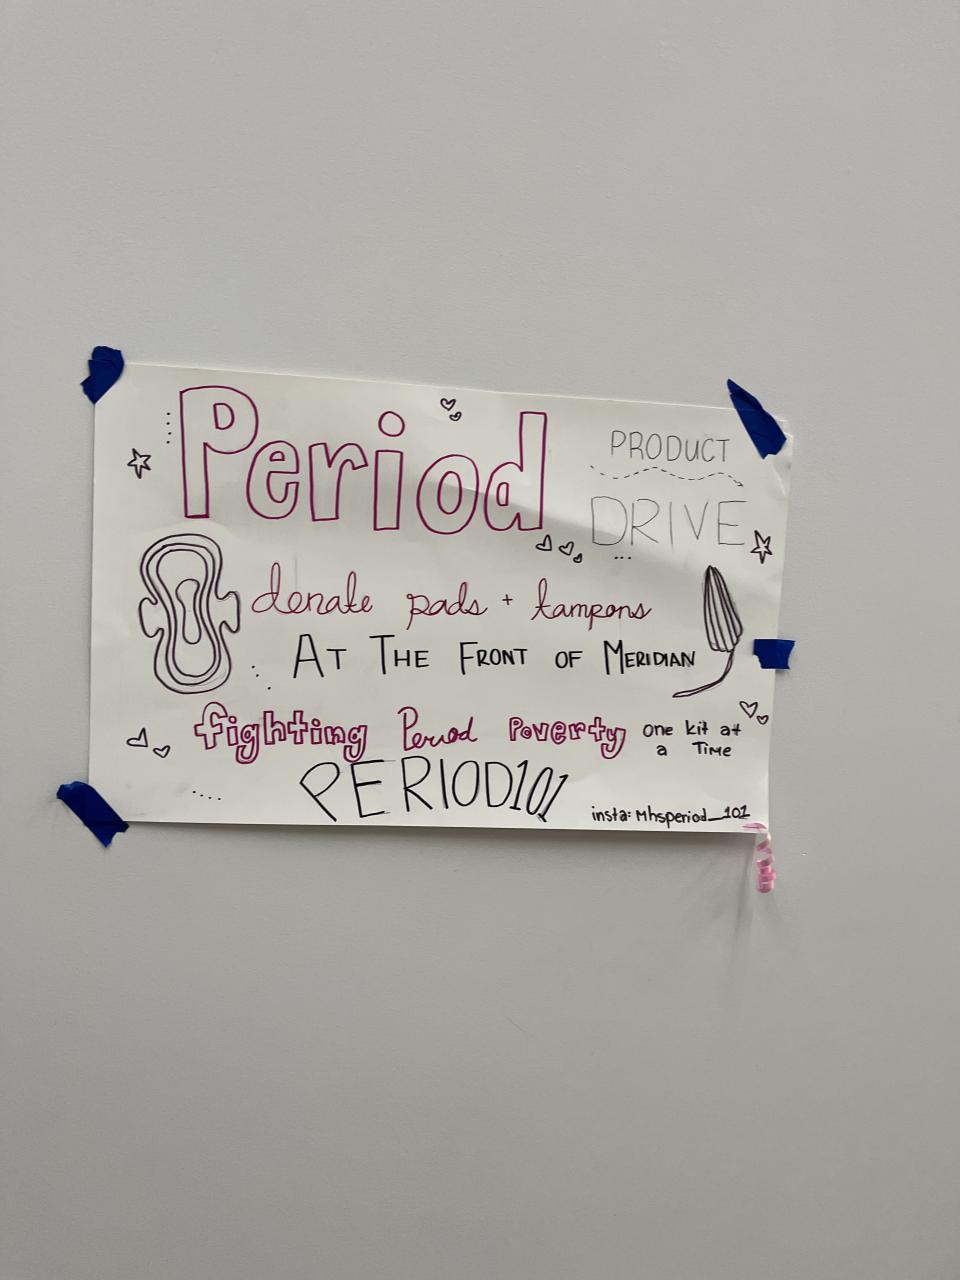 Period
PRODUCT
DRIVE
donate pads + tampons
AT THE FRONT OF MERIDIAN
fighting Period Poverty one kit at
a Time
PERIOD101
insta: Mhsperiod_101